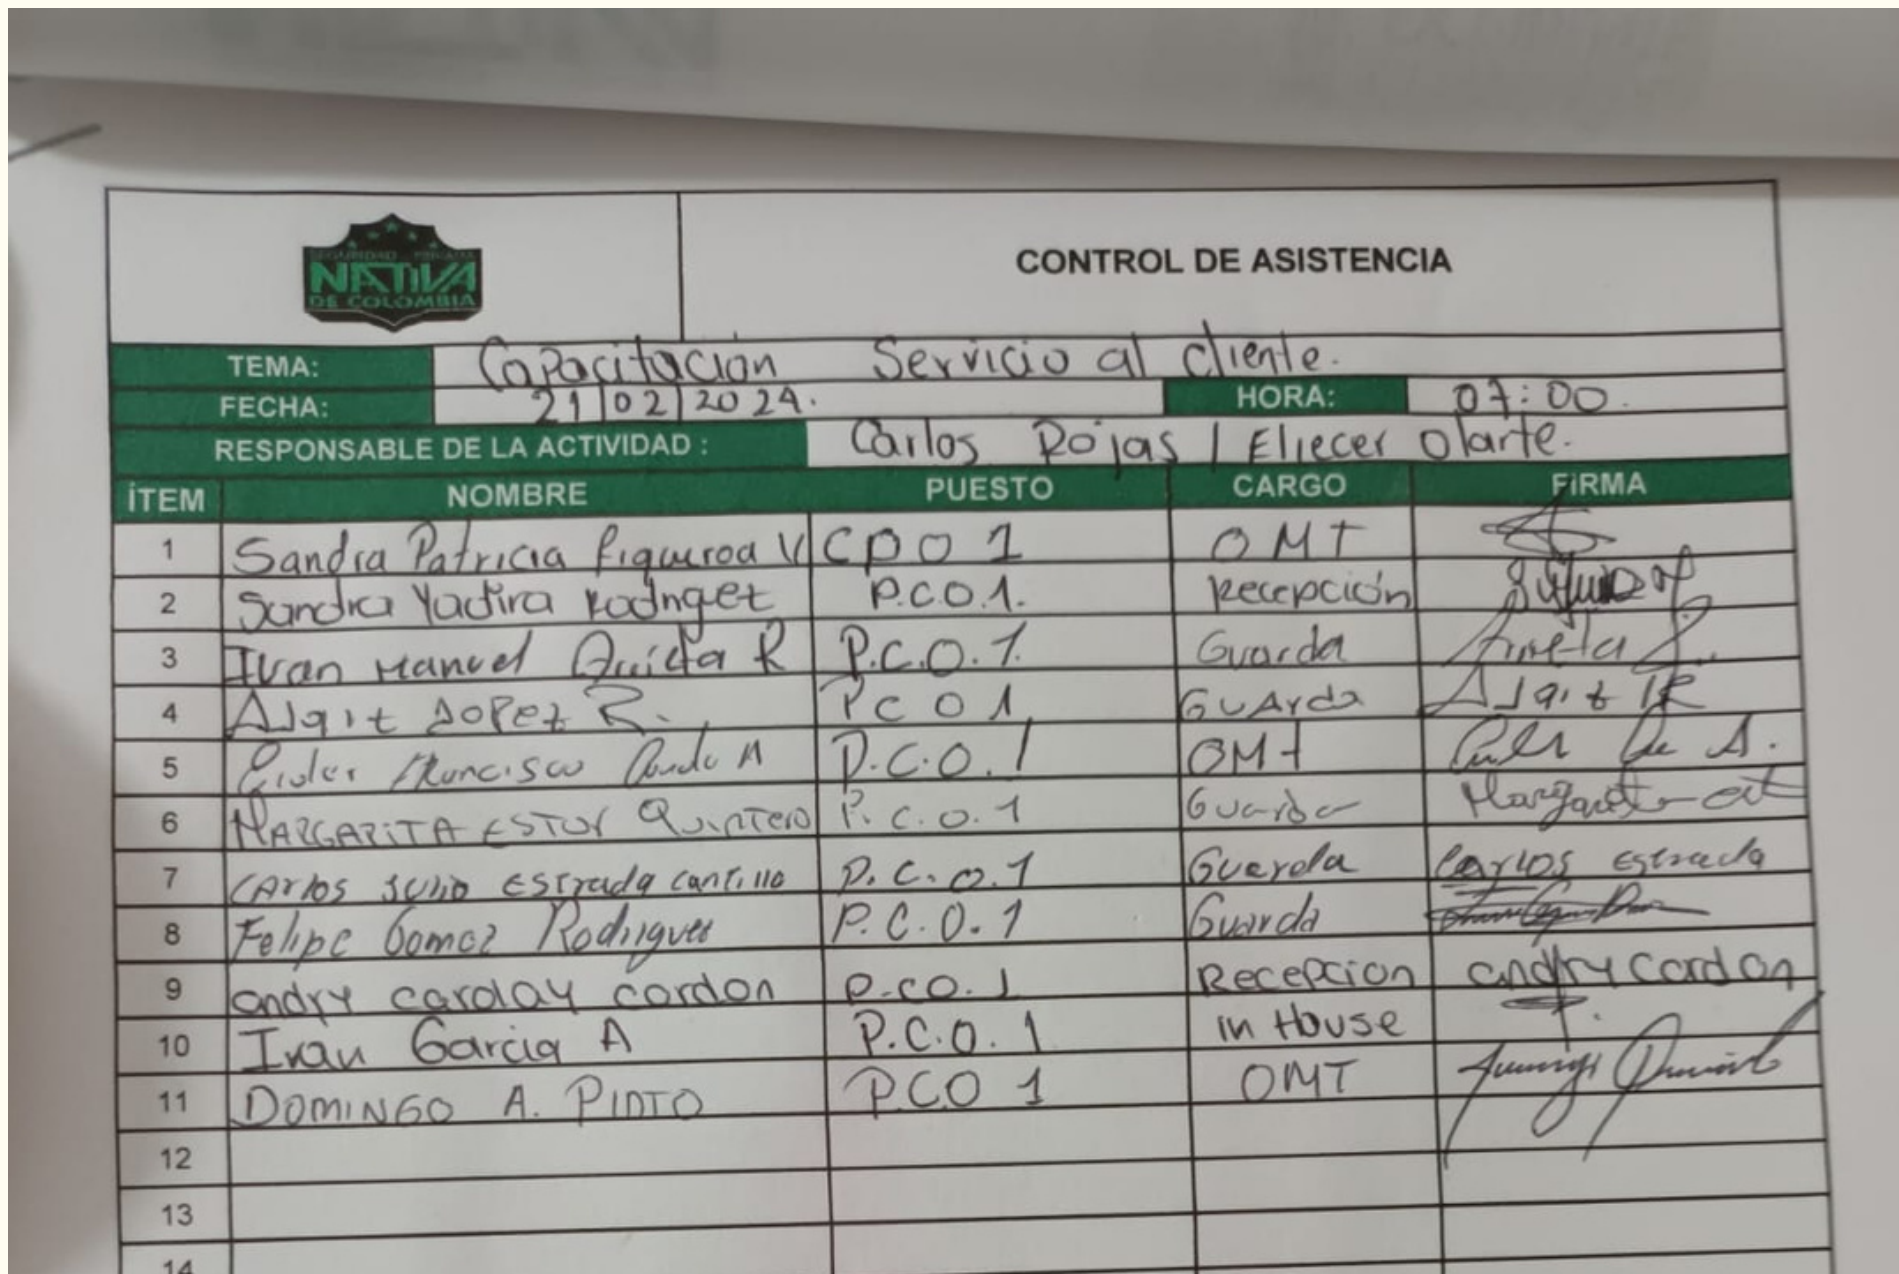 SEGURIDAD PRIVADA
NATIVA
DE COLOMBIA
CONTROL DE ASISTENCIA
TEMA: Capacitación Servicio al cliente.
FECHA: 21/02/2024. HORA: 07:00.
RESPONSABLE DE LA ACTIVIDAD : Carlos Rojas / Eliecer Olarte.
ÍTEM NOMBRE PUESTO CARGO FIRMA
1 Sandra Patricia Figueroa V CDO 1 OMT
2 Sandra Yadira Rodriguez P.C.O.1. Recepción
3 Ivan Manuel R P.C.O.1. Guarda
4 Lopez R. PCO1 GUArda
5 Francisco A P.C.O.1 OMT
6 MARGARITA ESTOR QuinTero P.C.O.1 Guarda Margarita
7 CArlos Julio EStrada cantillo P.C.O.1 Guarda Carlos Estrada
8 Felipe Gomez Rodriguez P.C.O.1 Guarda
9 andry caroloy cordon P.CO.1 Recepcion andry cordon
10 Ivan Garcia A P.C.O.1 in House
11 DOMINGO A. PINTO P.CO 1 OMT
12
13
14